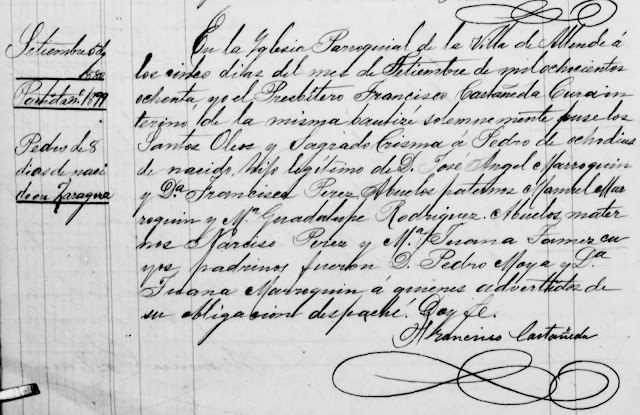 Setiembre 5 de
1880
Partida n.º 1899
Pedro de 8
dias de naci
do en Zaragoza
En la Yglesia Parroquial de la Villa de Allende á
los cinco dias del mes de Setiembre de mil ochocientos
ochenta yo el Presbítero Francisco Castañeda Cura in
terino de la misma bautisé solemnemente puse los
Santos Oleos y Sagrado Crisma á Pedro de ocho dias
de nacido, hijo legítimo de D. José Angel Marroquin
y Dª Francisca Perez. Abuelos paternos Manuel Mar
roquin y Mª Guadalupe Rodriguez. Abuelos mater
nos Narciso Perez y Mª Juana Tamez cu
yos padrinos fueron D. Pedro Moya y Dª
Juana Marroquin á quienes advertidos de
su obligacion despaché. Doy fé.
Francisco Castañeda